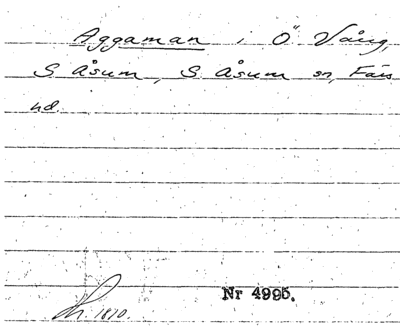 Aggaman, Ö Vång,
S Åsum, S Åsum sn, Färs
hd.
Nr 4995.
1810.